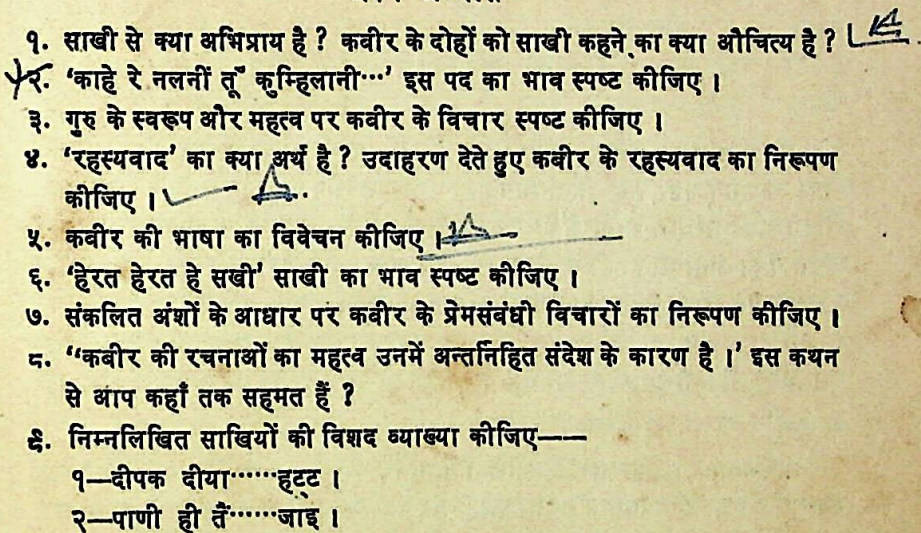 १. साखी से क्या अभिप्राय है ? कबीर के दोहों को साखी कहने का क्या औचित्य है ?
२. 'काहे रे नलनीं तूँ कुम्हिलानी···' इस पद का भाव स्पष्ट कीजिए ।
३. गुरु के स्वरूप और महत्व पर कबीर के विचार स्पष्ट कीजिए ।
४. 'रहस्यवाद' का क्या अर्थ है ? उदाहरण देते हुए कबीर के रहस्यवाद का निरूपण
कीजिए ।
५. कबीर की भाषा का विवेचन कीजिए ।
६. 'हेरत हेरत हे सखी' साखी का भाव स्पष्ट कीजिए ।
७. संकलित अंशों के आधार पर कबीर के प्रेमसंबंधी विचारों का निरूपण कीजिए ।
८. "कबीर की रचनाओं का महत्व उनमें अन्तर्निहित संदेश के कारण है ।' इस कथन
से आप कहाँ तक सहमत हैं ?
९. निम्नलिखित साखियों की विशद व्याख्या कीजिए——
१—दीपक दीया······हट्ट ।
२—पाणी ही तैं······जाइ ।